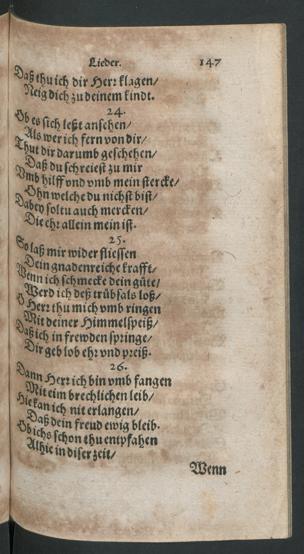 Lieder. 147
Daß thu ich dir Herr klagen/
Neig dich zu deinem kindt.
24.
Ob es sich leßt ansehen/
Als wer ich fern von dir/
Thut dir darumb geschehen/
Daß du schreiest zu mir
Vmb hilff vnd vmb mein stercke/
Ohn welche du nichst bist/
Dabey soltu auch mercken/
Die ehr allein mein ist.
25.
So laß mir wider fliessen
Dein gnadenreiche krafft/
Wenn ich schmecke dein güte/
Werd ich deß trübsals loß/
O Herr thu mich vmb ringen
Mit deiner Himmelspeiß/
Daß ich in frewden springe/
Dir geb lob ehr vnd preiß.
26.
Dann Herr ich bin vmb fangen
Mit eim brechlichen leib/
Hie kan ich nit erlangen/
Daß dein freud ewig bleib.
Ob ichs schon thu entpfahen
Alhie in diser zeit/
Wenn